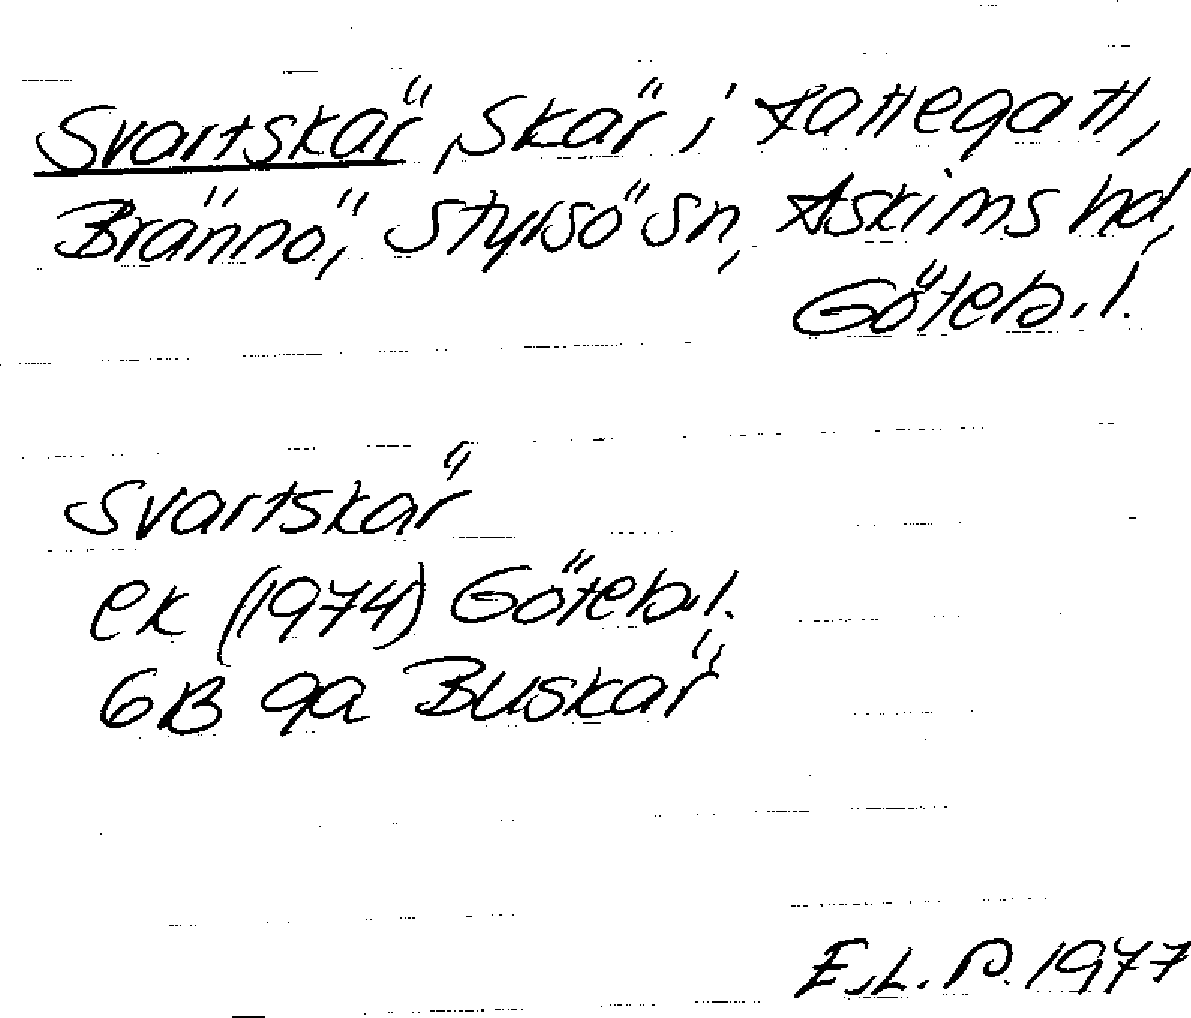 Svartskär, Skär i Kattegatt,
Brännö, Styrsö sn, Askims hd,
Göteb. l.
Svartskär
ek (1974) Göteb. l.
6B 9a Buskär
E.L.P. 1977